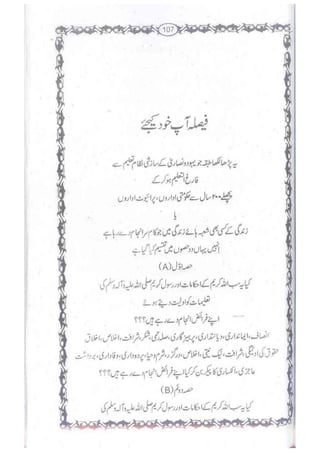 107
فیصلہ آپ خود کیجئے
یہ پڑھا لکھا طبقہ جو یہود و نصاریٰ کے سازشی نظام تعلیم سے
فارغ التعلیم ہو کر کے
پچھلے ۲۰۰ سال سے حکومتی اداروں، پرائیوٹ اداروں
یا
زندگی کے کسی بھی شعبہ ہائے زندگی میں جو کام سر انجام دے رہا ہے
انہیں یہاں دو حصوں میں تقسیم کیا گیا ہے
حصہ اوّل (A)
کیا یہ سب اللہ کریم کے احکامات اور رسول کریم صلی اللہ علیہ وآلہ وسلم کی
تعلیمات کو اولیت دیتے ہوئے
اپنے فرائض انجام دے رہے ہیں؟؟؟
انصاف، ایمانداری، دیانتداری، پرہیزگاری، صلہ رحمی، شکر، شرافت، اخلاص، اخلاق
حقوق کی ادائیگی، شرافت، نیک نیتی، اخلاص، درگزر، شرم و حیا، پردہ داری، وفاداری، برداشت
عاجزی، انکساری کا پیکر بن کر کیا اپنے فرائض انجام دے رہے ہیں؟؟؟
حصہ دوئم (B)
کیا یہ سب اللہ کریم کے احکامات اور رسول کریم صلی اللہ علیہ وآلہ وسلم کی